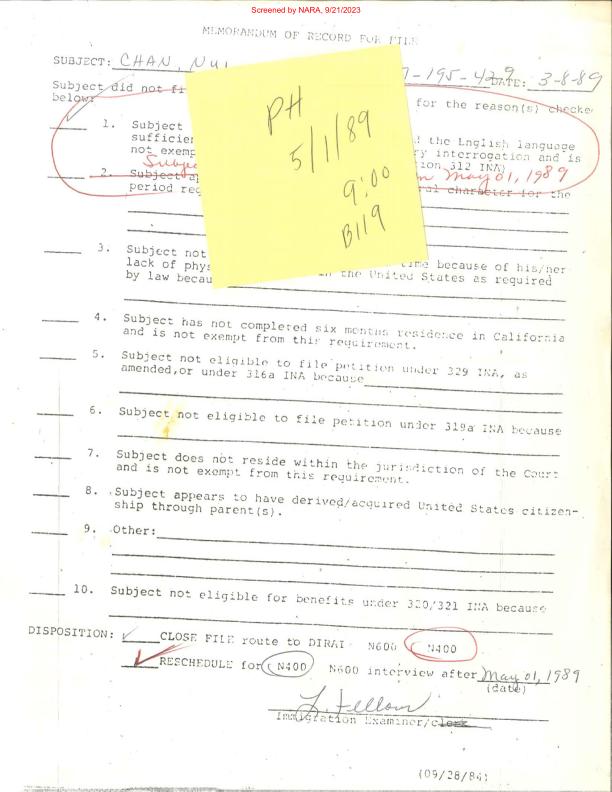 Screened by NARA, 9/21/2023
MEMORANDUM OF RECORD FOR FILE
SUBJECT: CHAN, NUI 7-195-429 DATE: 3-8-89
Subject did not fi for the reason(s) checke
below:
PH
5/1/89
9:00
B119
1. Subject
sufficien d the English language
not exemp ry interrogation and is
tion 312 INA)
Subje n May 01, 1989
2. Subject a ral character for the
period req
3. Subject not time because of his/her
lack of phys in the United States as required
by law becau
4. Subject has not completed six months residence in California
and is not exempt from this requirement.
5. Subject not eligible to file petition under 329 INA, as
amended, or under 316a INA because
6. Subject not eligible to file petition under 319a INA because
7. Subject does not reside within the jurisdiction of the Court
and is not exempt from this requirement.
8. Subject appears to have derived/acquired United States citizen-
ship through parent(s).
9. Other:
10. Subject not eligible for benefits under 320/321 INA because
DISPOSITION: CLOSE FILE route to N600 N400
RESCHEDULE for N400 N600 interview after May 01, 1989
(date)
L. Fellow
Immigration Examiner/clerk
(09/28/84)